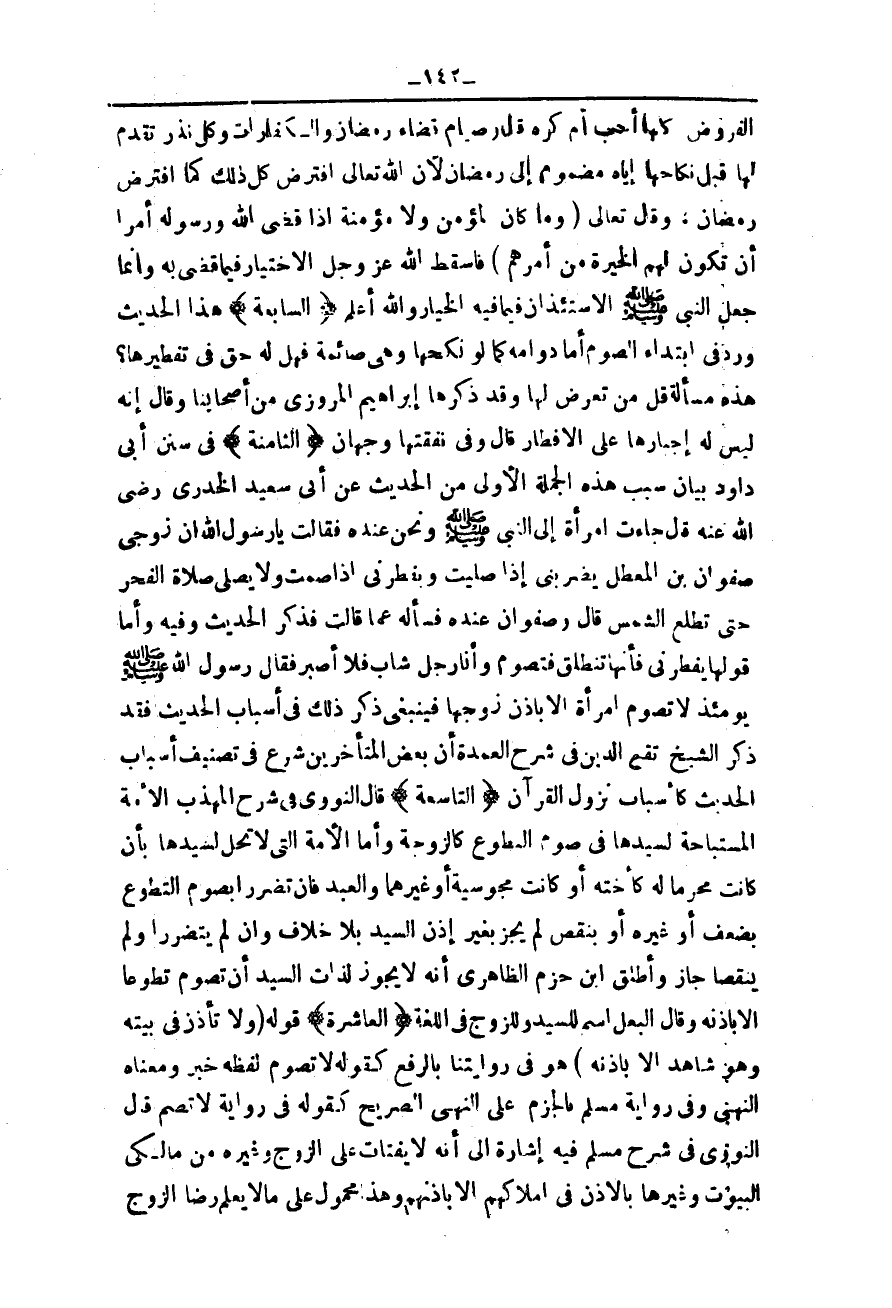 ـ١٤٢ـ
الفروض كلها أحب أم كره قال وصيام قضاء رمضان والكفارات وكل نذر تقدم
لها قبل نكاحها إياه مضموم إلى رمضان لأن الله تعالى افترض كل ذلك كما افترض
رمضان ؛ وقال تعالى ( وما كان لمؤمن ولا مؤمنة اذا قضى الله ورسوله أمرا
أن تكون لهم الخيرة من أمرهم ) فاسقط الله عز وجل الاختيار فيما قضى به وانما
جعل النبي ﷺ الاستئذان فيما فيه الخيار والله أعلم ﴿ السابعة ﴾ هذا الحديث
ورد فى ابتداء الصوم أما دوامه كما لو نكحها وهى صائمة فهل له حق فى تفطيرها؟
هذه مسألة قل من تعرض لها وقد ذكرها إبراهيم المروزى من أصحابنا وقال إنه
ليس له إجبارها على الافطار قال وفى نفقتها وجهان ﴿ الثامنة ﴾ فى سنن أبى
داود بيان سبب هذه الجملة الأولى من الحديث عن أبى سعيد الخدرى رضى
الله عنه قال جاءت امرأة إلى النبي ﷺ ونحن عنده فقالت يارسول الله ان زوجى
صفوان بن المعطل يضربنى إذا صليت ويفطرنى اذا صمت ولا يصلى صلاة الفجر
حتى تطلع الشمس قال وصفوان عنده فسأله عما قالت فذكر الحديث وفيه وأما
قولها يفطرنى فأنها تنطلق فتصوم وأنا رجل شاب فلا أصبر فقال رسول الله ﷺ
يومئذ لا تصوم امرأة الا باذن زوجها فينبغى ذكر ذلك فى أسباب الحديث فقد
ذكر الشيخ تقى الدين فى شرح العمدة أن بعض المتأخرين شرع فى تصنيف أسباب
الحديث كأسباب نزول القرآن ﴿ التاسعة ﴾ قال النووى فى شرح المهذب الأمة
المستباحة لسيدها فى صوم التطوع كالزوجة وأما الأمة التى لا تحل لسيدها بأن
كانت محرما له كأخته أو كانت مجوسية أو غيرهما والعبد فان تضررا بصوم التطوع
بضعف أو غيره أو بنقص لم يجز بغير إذن السيد بلا خلاف وان لم يتضررا ولم
ينقصا جاز وأطلق ابن حزم الظاهرى أنه لا يجوز لذات السيد أن تصوم تطوعا
الا باذنه وقال البعل اسم للسيد وللزوج فى اللغة ﴿ العاشرة ﴾ قوله (ولا تأذن فى بيته
وهو شاهد الا باذنه ) هو فى روايتنا بالرفع كقوله لا تصوم لفظه خبر ومعناه
النهى وفى رواية مسلم بالجزم على النهى الصريح كقوله فى رواية لا تصم قال
النووى فى شرح مسلم فيه إشارة الى أنه لا يفتات على الزوج وغيره من مالكى
البيوت وغيرها بالاذن فى املاكهم الا باذنهم وهذا محمول على مالا يعلم رضا الزوج